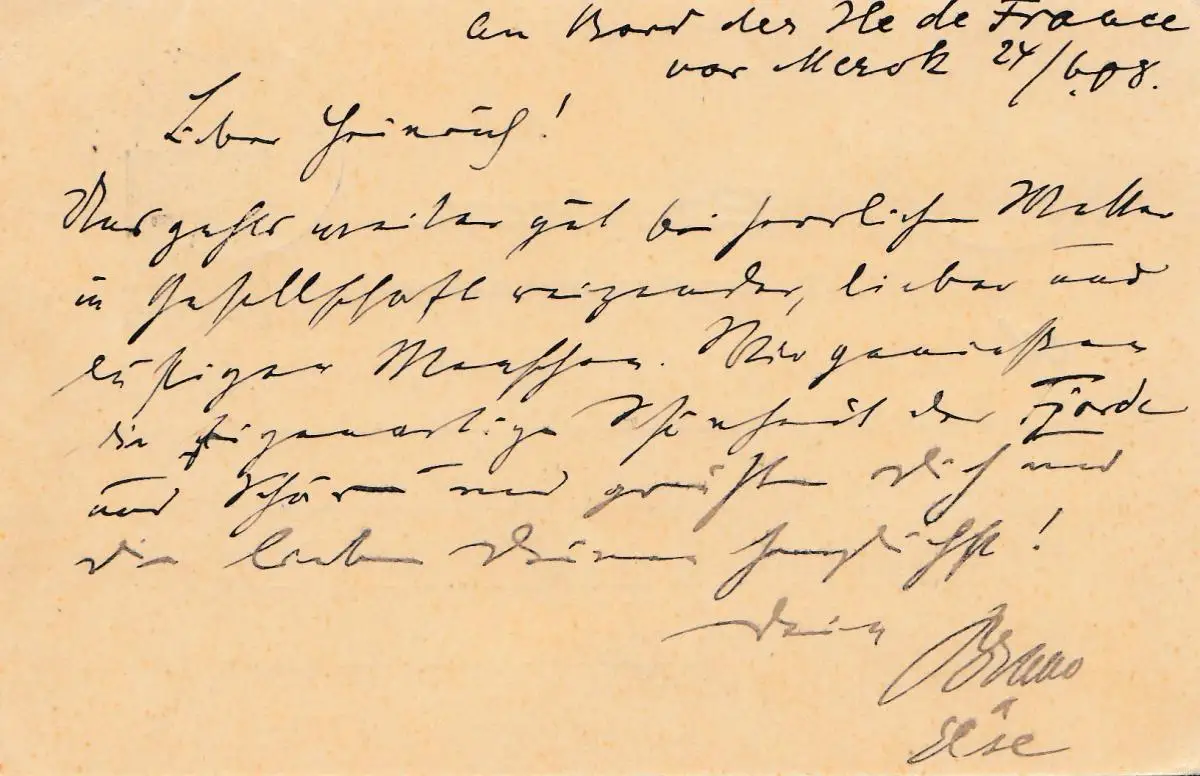 An Bord der Ile de France
vor Merok 24/6.08.
Lieber Heinrich!
Uns geht's weiter gut bei herrlichem Wetter
in Gesellschaft reizender, lieber und
lustiger Menschen. Wir genießen
die eigenartige Schönheit der Fjorde
und Schären und grüßen Dich und
die lieben Deinen herzlichst!
Dein Bruno
u
Else